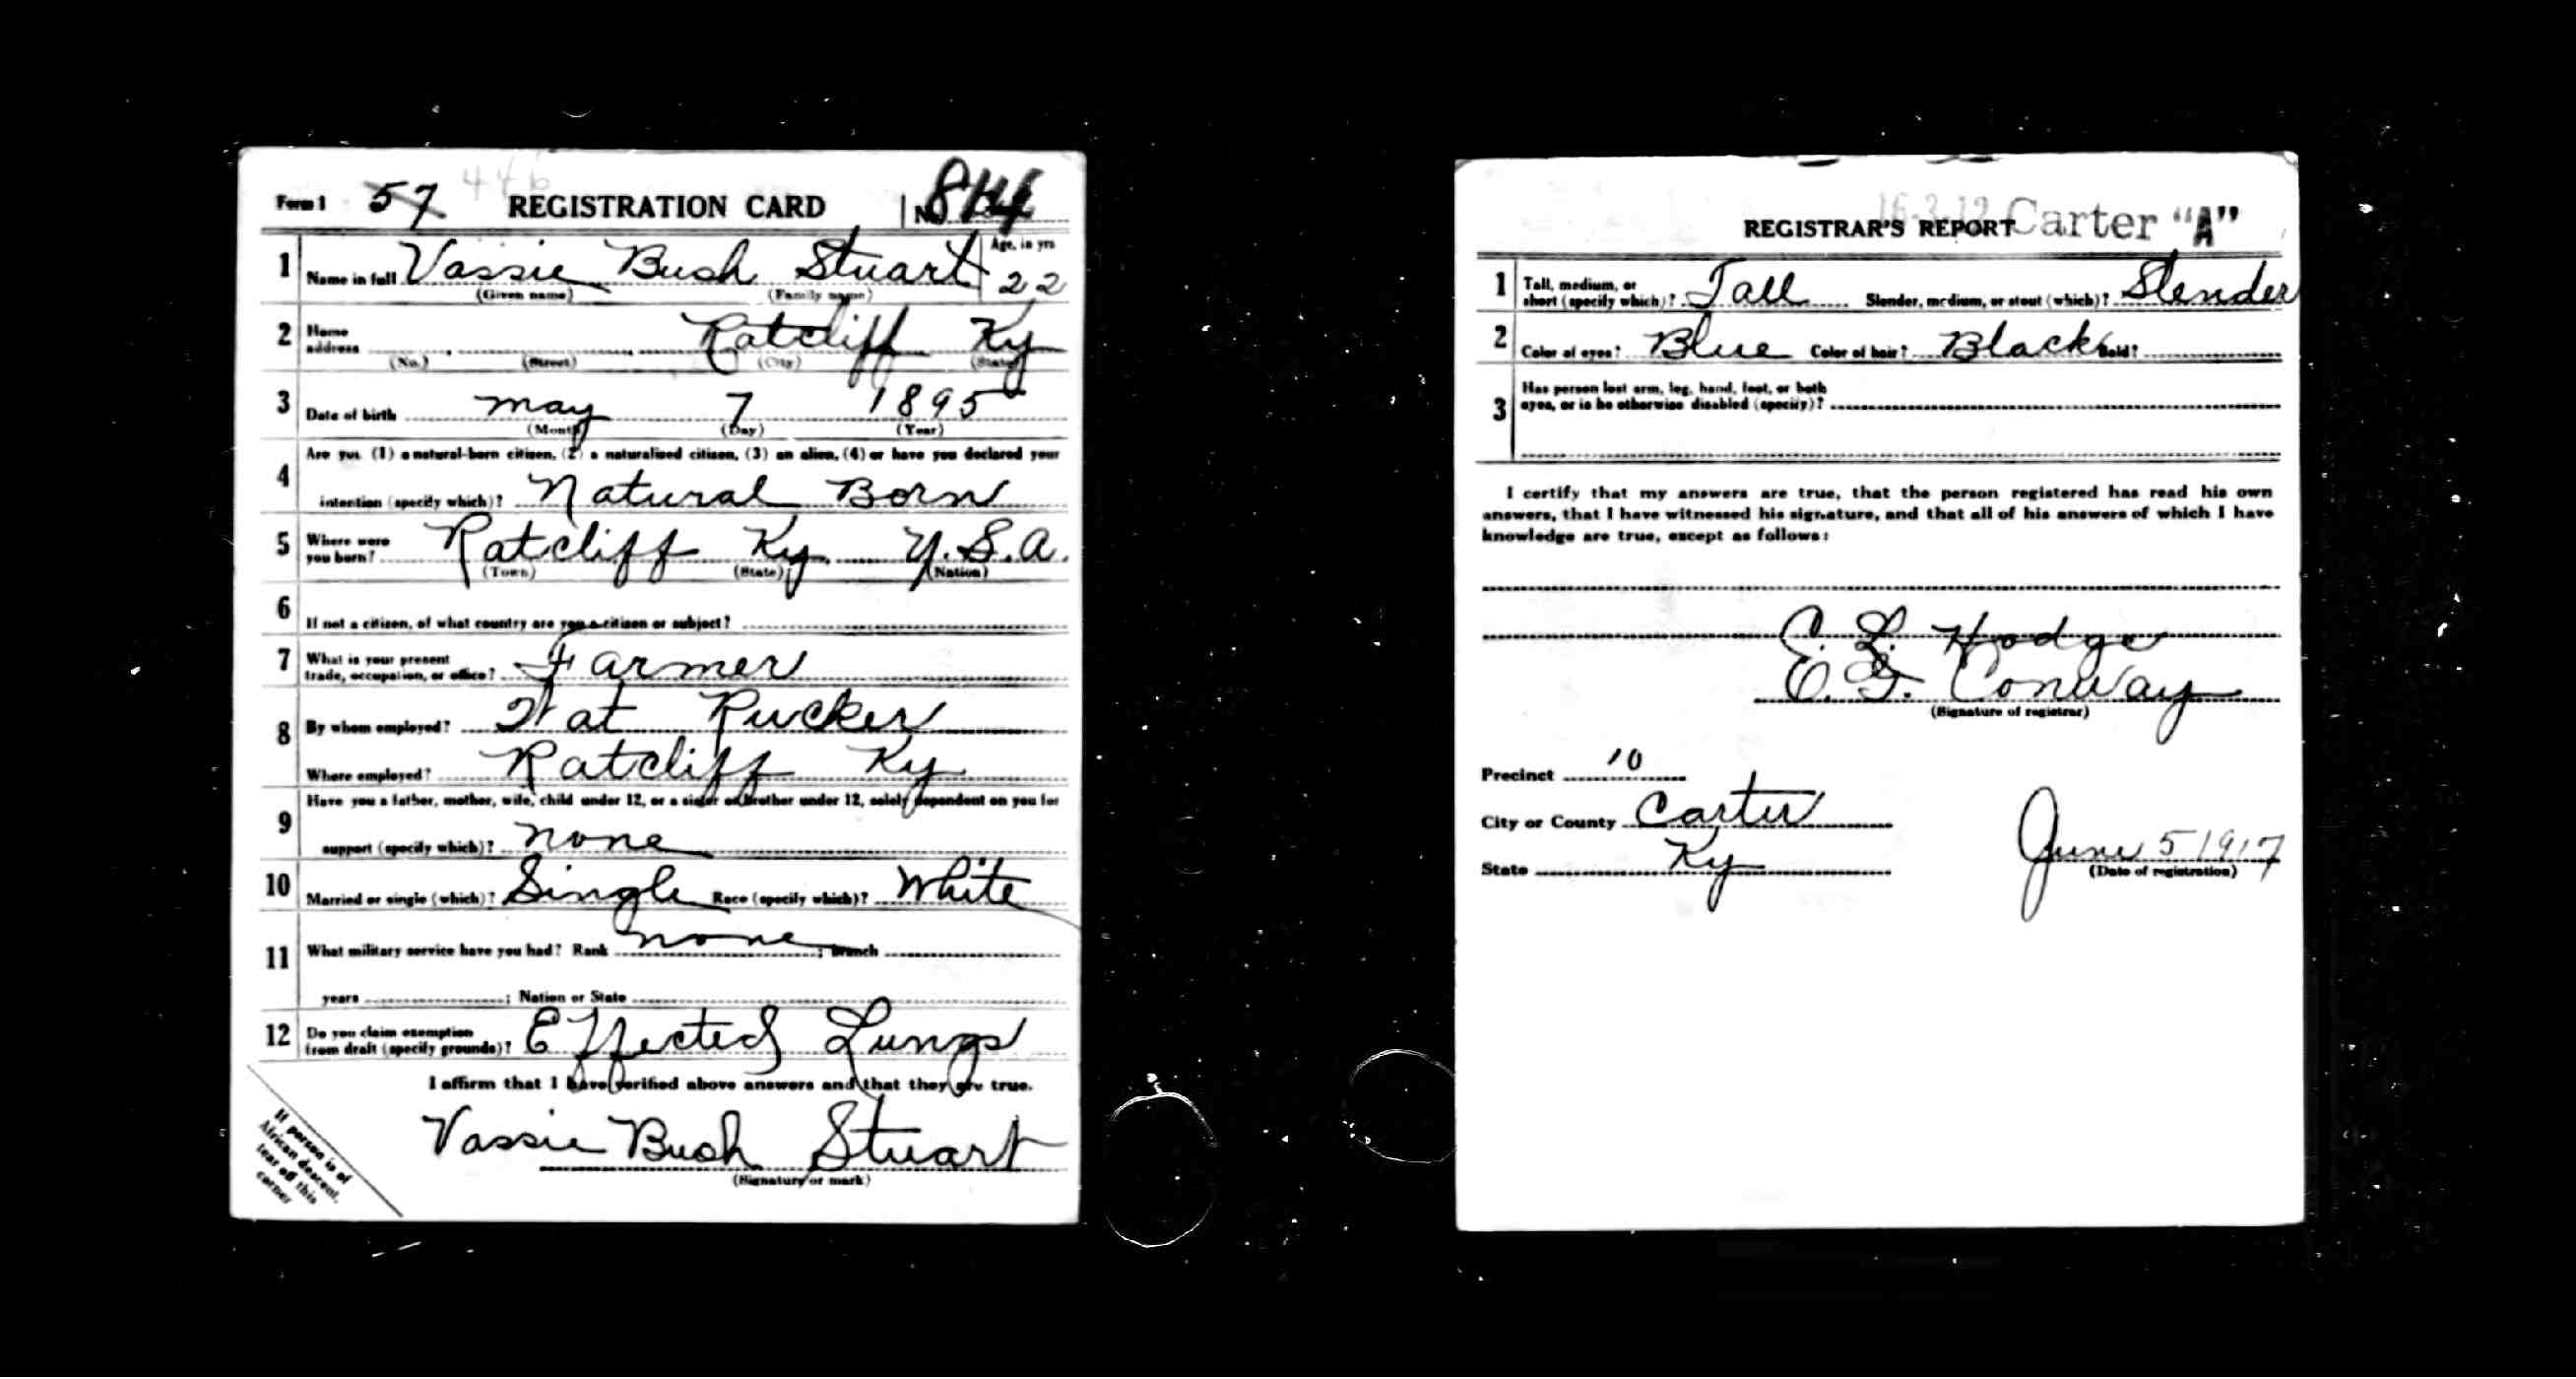 Form 1 57 446 REGISTRATION CARD No.
1 Name in full Vassie Bush Stuart Age, in yrs 22
(Given name) (Family name)
2 Home address Ratcliff Ky
(No.) (Street) (City) (State)
3 Date of birth May 7 1895
(Month) (Day) (Year)
4 Are you (1) a natural-born citizen, (2) a naturalized citizen, (3) an alien, (4) or have you declared your
intention (specify which)? Natural Born
5 Where were you born? Ratcliff Ky U.S.A.
(Town) (State) (Nation)
6 If not a citizen, of what country are you a citizen or subject?
7 What is your present trade, occupation, or office? Farmer
8 By whom employed? Nat Rucker
Where employed? Ratcliff Ky
9 Have you a father, mother, wife, child under 12, or a sister or brother under 12, solely dependent on you for
support (specify which)? None
10 Married or single (which)? Single Race (specify which)? White
11 What military service have you had? Rank none ; branch
years ; Nation or State
12 Do you claim exemption from draft (specify grounds)? Effected Lungs
I affirm that I have verified above answers and that they are true.
Vassie Bush Stuart
(Signature or mark)
If person is of
African descent,
tear off this
corner
16-3-12 Carter "A"
REGISTRAR'S REPORT
1 Tall, medium, or short (specify which)? Tall Slender, medium, or stout (which)? Slender
2 Color of eyes? Blue Color of hair? Black Bald?
3 Has person lost arm, leg, hand, foot, or both
eyes, or is he otherwise disabled (specify)?
I certify that my answers are true, that the person registered has read his own
answers, that I have witnessed his signature, and that all of his answers of which I have
knowledge are true, except as follows:
E. L. Hodge
E. G. Conway
(Signature of registrar)
Precinct 10
City or County Carter
State Ky June 5 1917
(Date of registration)